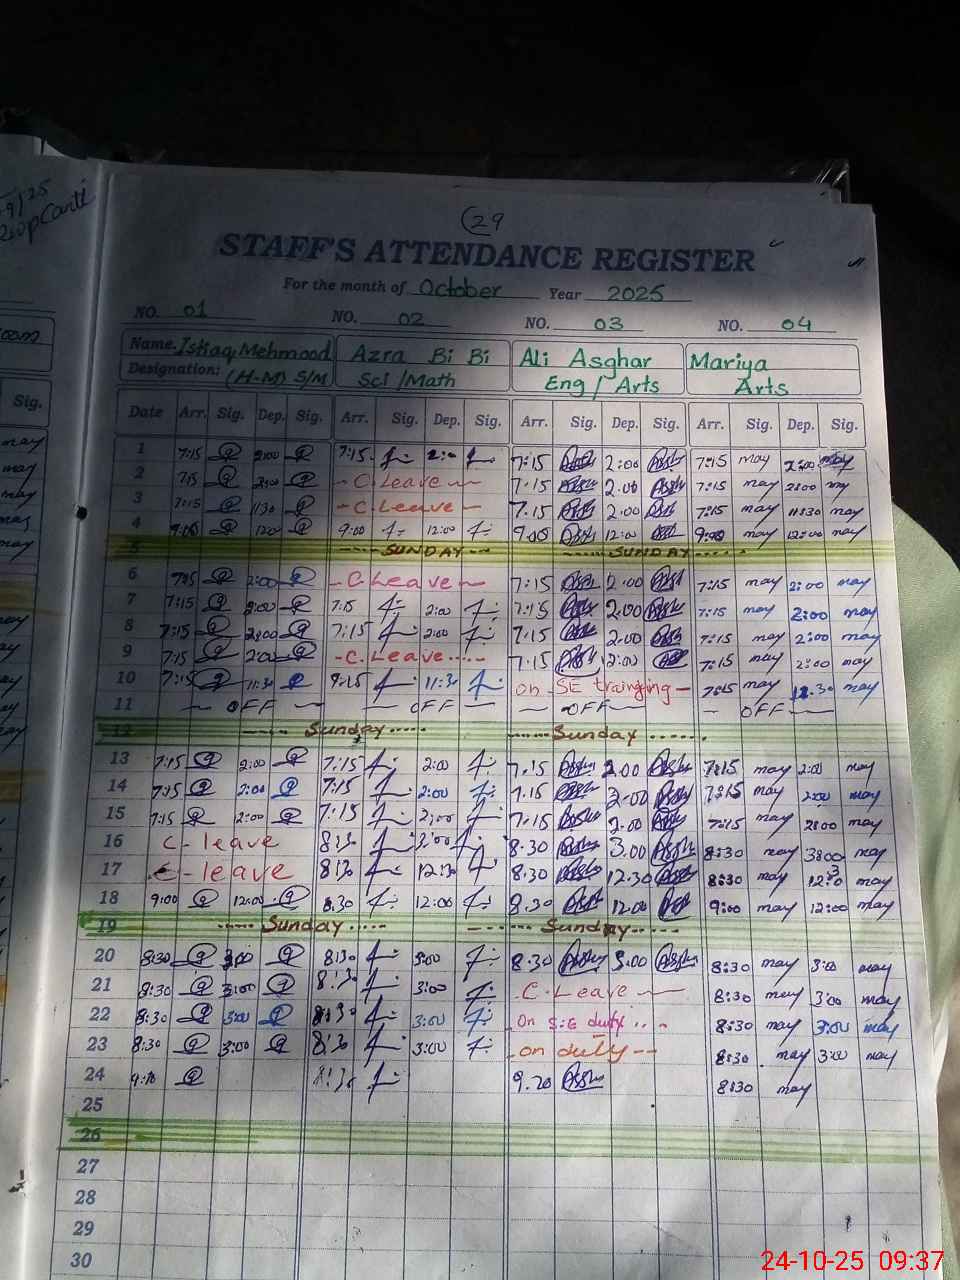 29
STAFF'S ATTENDANCE REGISTER
For the month of October Year 2025
NO. 01 NO. 02 NO. 03 NO. 04
Name. Istiaq Mehmood Azra Bi Bi Ali Asghar Mariya
Designation: (H-M) S/M Sci /Math Eng / Arts Arts
Sig. Date Arr. Sig. Dep. Sig. Arr. Sig. Dep. Sig. Arr. Sig. Dep. Sig. Arr. Sig. Dep. Sig.
1 7:15 2:00 7:15 2:00 7:15 2:00 7:15 may 2:00 may
2 7:15 2:00 - C. Leave - 7.15 2.00 7:15 may 2:00 my
3 7:15 1130 - C. Leave - 7.15 2.00 7:15 may 11:30 may
4 9:00 12:00 9:00 12:00 9.00 12:00 9:00 may 12:00 may
5 SUNDAY SUNDAY
6 7:15 2:00 - C. Leave - 7:15 2:00 7:15 may 2:00 may
7 7:15 2:00 7:15 2:00 7:15 2:00 7:15 may 2:00 may
8 7:15 2:00 7:15 2:00 7:15 2:00 7:15 may 2:00 may
9 7:15 2:00 - C. Leave ..... 7:15 2:00 7:15 may 2:00 may
10 7:15 11:30 9:15 11:30 on SE training - 7:15 may 11:30 may
11 - OFF - - OFF - - OFF - - OFF -
12 Sunday Sunday
13 7:15 2:00 7:15 2:00 7.15 2.00 7:15 may 2:00 may
14 7:15 2:00 7:15 2:00 7.15 2.00 7:15 may 2:00 may
15 7:15 2:00 7:15 2:00 7.15 2.00 7:15 may 2:00 may
16 C- leave 8:30 3:00 8.30 3.00 8:30 may 3:00 may
17 C- leave 8:30 12:30 8.30 12.30 8:30 may 12:30 may
18 9:00 12:00 8.30 12:00 8.30 12.00 9:00 may 12:00 may
19 Sunday Sunday
20 8:30 3:00 8:30 3:00 8.30 3.00 8:30 may 3:00 may
21 8:30 3:00 8:30 3:00 C. Leave 8:30 may 3:00 may
22 8:30 3:00 8:30 3:00 On S.E duty 8:30 may 3:00 may
23 8:30 3:00 8:30 3:00 - on duty -- 8:30 may 3:00 may
24 9:10 8:30 9.20 8:30 may
25
26
27
28
29
30
24-10-25 09:37